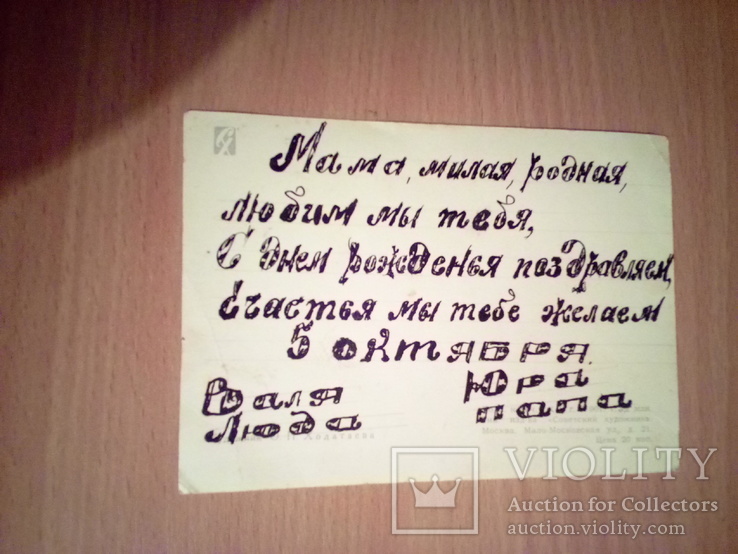 Мама, милая, родная,
любим мы тебя,
С днем рожденья поздравляем,
счастья мы тебе желаем
5 октября.
Валя Юра
Люда папа
Москва, Мало-Московская ул., д. 21.
Цена 20 коп.
VIOLITY
Auction for Collectors
auction.violity.com